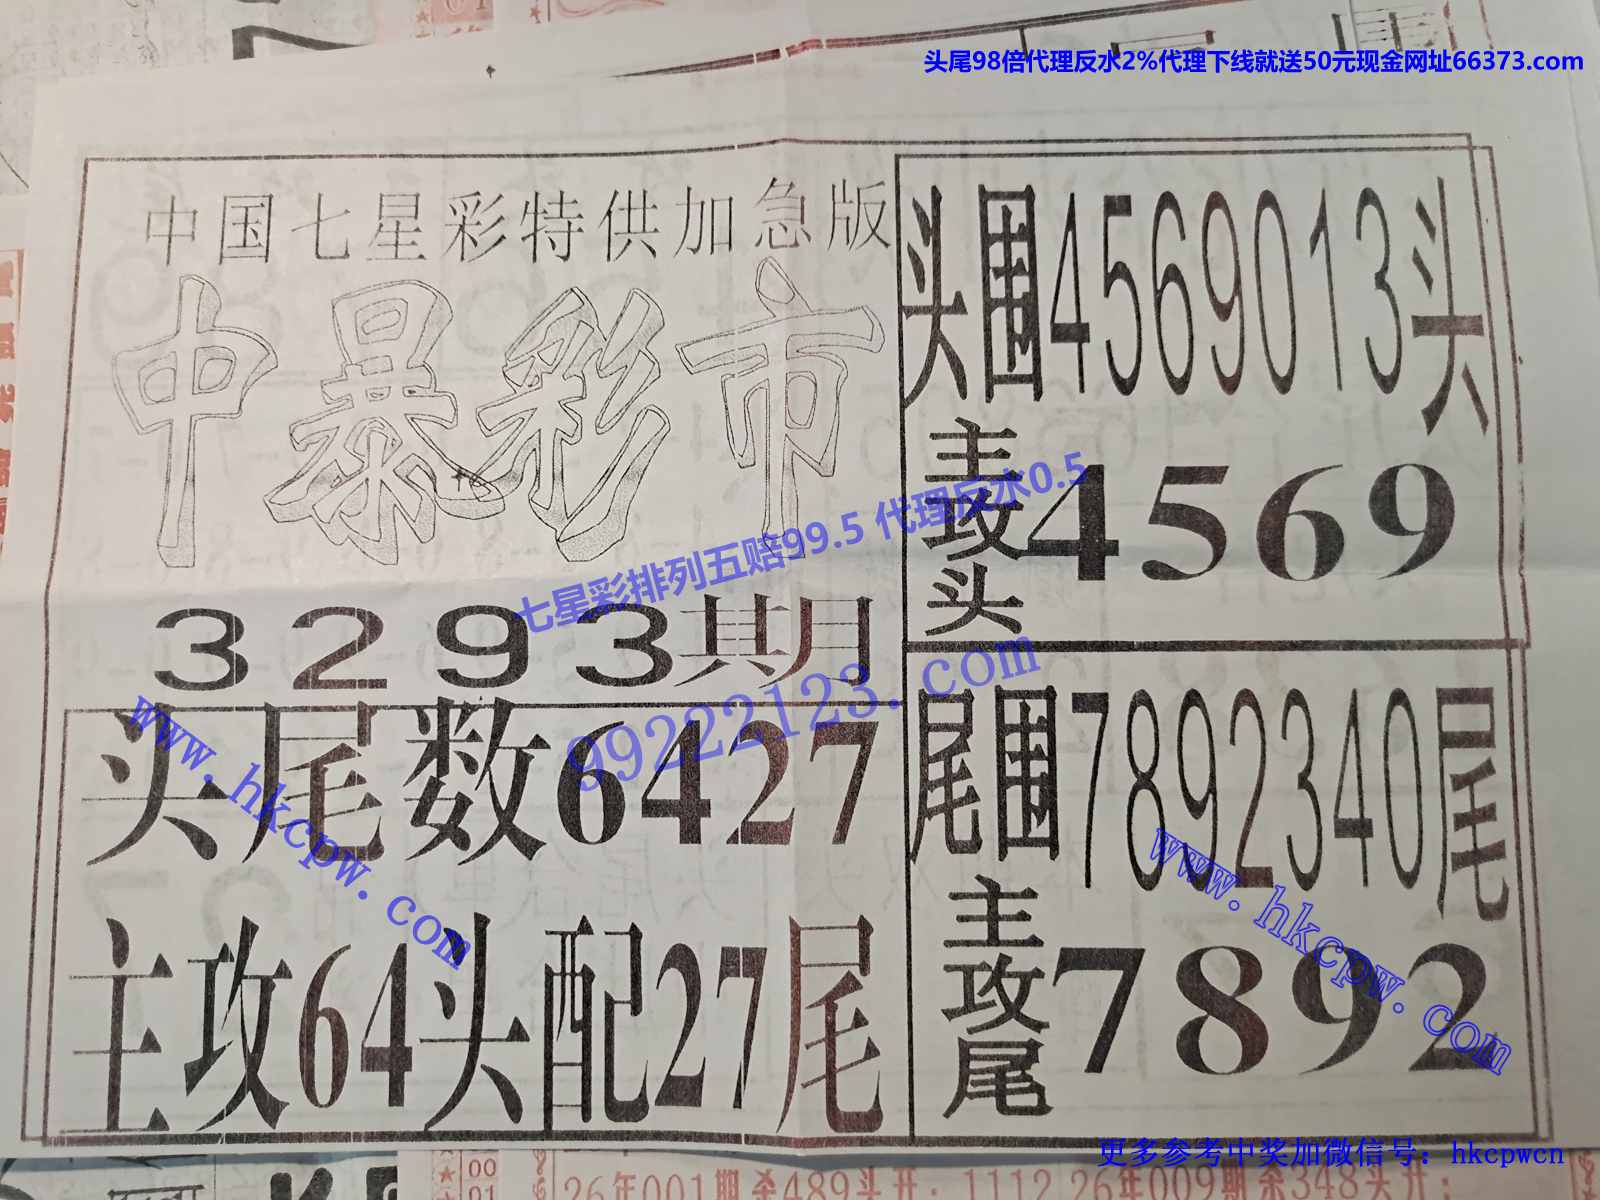 头尾98倍代理反水2%代理下线就送50元现金网址66373.com
中国七星彩特供加急版
中暴彩市
3293其月
头尾数6427
主攻64头配27尾
头围4569013头
主攻头4569
尾围7892340尾
主攻尾7892
七星彩排列五赔99.5 代理反水0.5
99222123.com
www.hkcpw.com
www.hkcpw.com
更多参考中奖加微信号：hkcpwcn
00
01
26年001期杀489头开：1112
26年009期杀348头开：